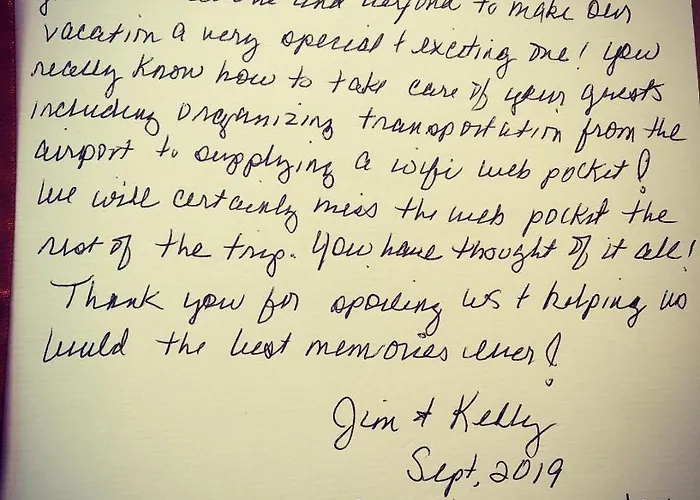 and beyond to make our
vacation a very special & exciting one! You
really know how to take care of your guests
including organizing transportation from the
airport to supplying a wifi web pocket!
We will certainly miss the web pocket the
rest of the trip. You have thought of it all!
Thank you for spoiling us & helping us
build the best memories ever!
Jim & Kelly
Sept, 2019